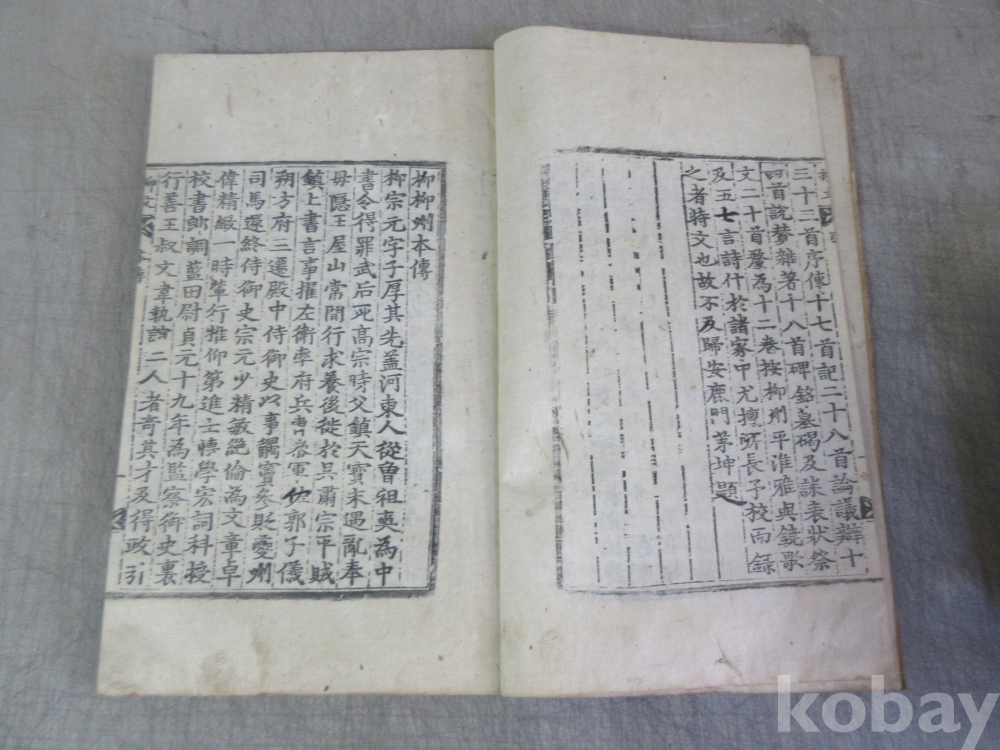 三十二首序傳十七首記二十八首論議辯十
四首說贊雜著十八首碑銘墓碣及誄表狀祭
文二十首釐為十二卷按柳州平淮雅與鐃歌
及五七言詩什於諸家中尤擅所長予校而錄
之者時文也故不及歸安鹿門茅坤題
柳柳州本傳
柳宗元字子厚其先盖河東人從曾祖奭為中
書令得罪武后死高宗時父鎮天寶末遇亂奉
母隱王屋山常間行求養後徙於吳肅宗平賊
鎮上書言事擢左衛率府兵曹參軍佐郭子儀
朔方府三遷殿中侍御史以事觸竇參貶夔州
司馬還終侍御史宗元少精敏絶倫為文章卓
偉精緻一時軰行推仰第進士博學宏詞科授
校書郎調藍田尉貞元十九年為監察御史裏
行善王叔文韋執誼二人者竒其才及得政引
kobay